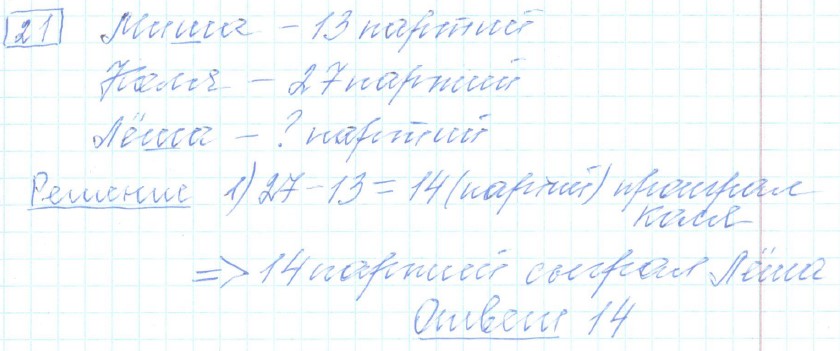 21 Миша – 13 партий
Коля – 27 партий
Лёша – ? партий
Решение 1) 27 – 13 = 14 (партий) проиграл
Коля
=> 14 партий сыграл Лёша
Ответ 14